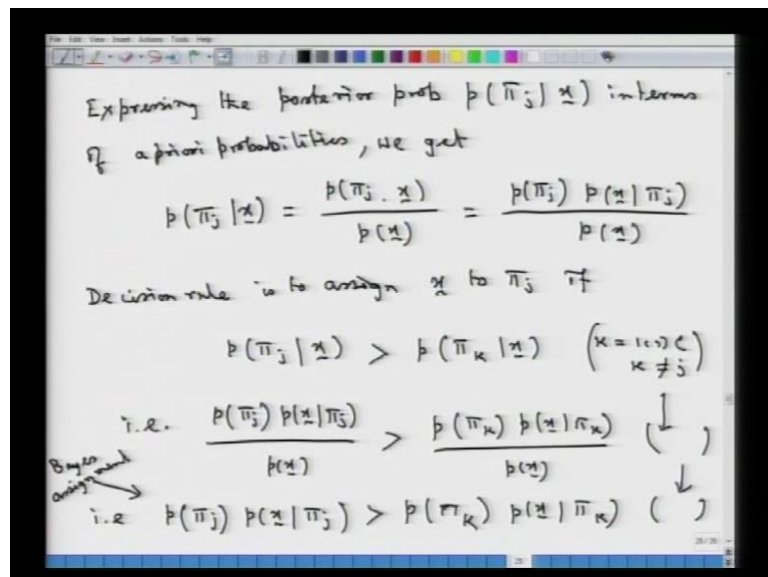 File Edit View Insert Actions Tools Help
Expressing the posterior prob p(π_j | x) interms
of apriori probabilities, we get
p(π_j | x) = p(π_j . x) / p(x) = p(π_j) p(x | π_j) / p(x)
Decision rule is to assign x to π_j if
p(π_j | x) > p(π_k | x) (k = 1(1)C k ≠ j)
i.e. p(π_j) p(x | π_j) / p(x) > p(π_k) p(x | π_k) / p(x) ( )
Bayes assignment
i.e p(π_j) p(x | π_j) > p(π_k) p(x | π_k) ( )
25